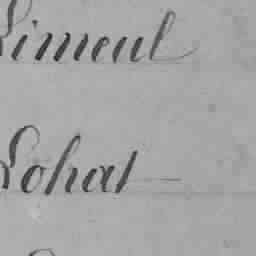 Limeul
Lohat